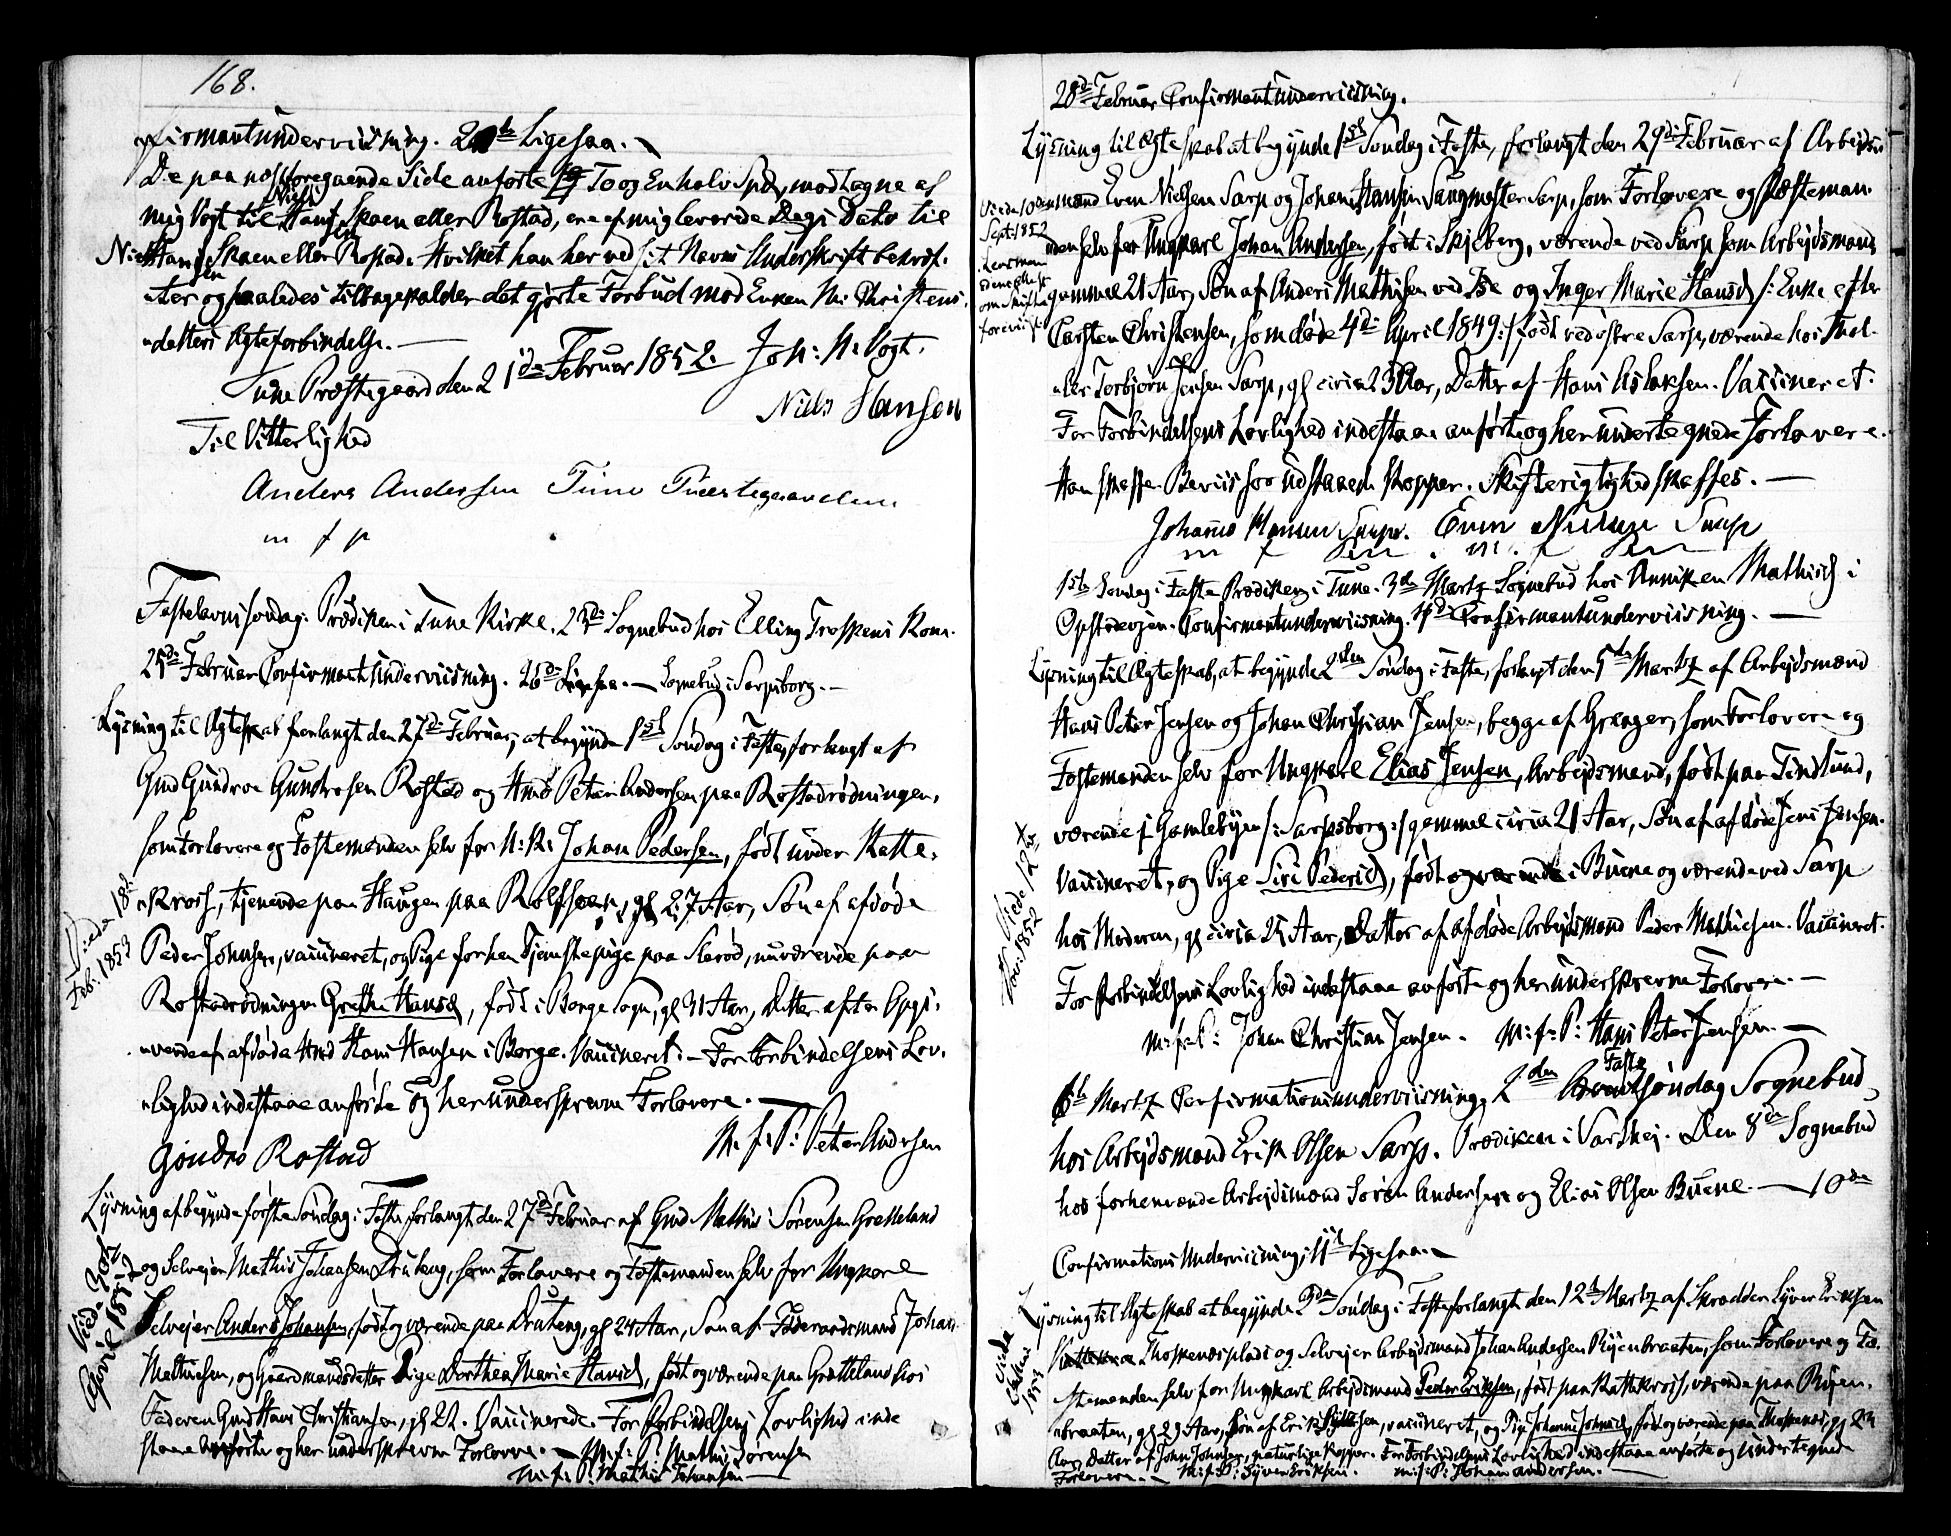 168.
firmantunderviisning. 20de Ligesaa.
De paa næstforegaende Side anførte To og En halv Spd, modtagne af
mig Vogt til Niels Hansen Skaen eller Rostad, ere af mig leverede Dags Dato til
Niels Hansen Skaen eller Rostad. Hvilket han her ved sit Navns Underskrift bekræf-
ter og saaledes tilbagekalder det gjorte Forbud mod Enken M: Christens-
datters Ægteforbindelse.
Tune Præstegaard den 21de Februar 1852. Joh: N. Vogt.
Niels Hansen
Til Vitterlighed
Anders Andersen Tune Præstegaarden
m f p
Fastelavnssøndag. Prædiken i Tune Kirke. 23de Sognebud hos Elling Troskens Kone.
25de Februar Confirmantundervisning. 26de Ligesaa. — Sognebud i Sarpsborg. —
Lysning til Ægteskab forlangt den 27de Februar, at begynde 1ste Søndag i Faste, forlangt af
Gmd Gundroe Gundrosen Rostad og Hmd Peter Andersen paa Rostadrødningen,
som Forlovere og Fæstemanden selv for U: K: Johan Pedersen, født under Katte-
Kros, tjenende paa Haugen paa Rolfsøen, gl 27 Aar, Søn af afdøde
Vieda 18de Feb. 1853
Peder Johnsen, vaccineret, og Pige forhen Tjenstepige paa Slerød, nuværende paa
Rostadrødningen Grethe Hansd, født i Borge Sogn, gl 31 Aar, Datter efter Opgi-
vende af afdøde Hmd Hans Hansen i Borge. Vaccineret. — For Forbindelsens Lov-
lighed indestaae anførte og her underskrevne Forlovere. —
Gondro Rostad M: f: P: Peter Andersen
Lysning at begynde første Søndag i Faste, forlangt den 27de Februar af Gmd Mathis Sørensen Gretteland
og Selvejer Mathis Johansen Drüteng, som Forlovere og Fæstemanden selv for Ungkarl
Viede 30te April 1852
Selvejer Anders Johansen, født og værende paa Drüteng, gl 24 Aar, Søn af Føderaadsmand Johan
Mathiesen, og Gaardmandsdatter Pige Dorthea Marie Hansd, født og værende paa Gretteland hos
Faderen Gmd Hans Christiansen, gl 22. Vaccinerede. For Forbindelsens Lovlighed inde
staae anførte og her underskrevne Forlovere. — M: f: P: Mathis Sørensen
M: f: P: Mathis Johansen —
28de Februar Confirmantundervisning.
Lysning til Ægteskab at begynde 1ste Søndag i Faste, forlangt den 29de Februar af Arbejds-
mænd Even Nielsen Sarp og Johannes Hansen Saugmester Sarp, som Forlovere og Fæsteman-
den selv for Ungkarl Johan Andersen, født i Skjeberg, værende ved Sarp som Arbejdsmand,
gammel 21 Aar, Søn af Anders Mathisen ved Ise og Inger Marie Hansd /: Enke efter
Carsten Christensen, som døde 4de April 1849 :/ født ved østre Sarp, værende hos Møl-
ler Torbjørn Jensen Sarp, gl circa 23 Aar, Datter af Hans Aslaksen. Vaccineret.
For Forbindelsens Lovlighed indestaae anførte og her undertegnede Forlovere.
Han skaffe Beviis for udstaaede Kopper. Skifterigtighed skaffes. —
Johannes Hansen Sarp. Even Nielsen Sarp
m f Pen. m. f Pen
1ste Søndag i Faste Prædiken i Tune. 3de Martz Sognebud hos Anniken Mathisd i
Opstadvejen. Confirmantundervisning. 4de Confirmantundervisning. —
Lysning til Ægteskab, at begynde 2den Søndag i Faste, forlangt den 5te Martz af Arbejdsmænd
Hans Peter Jensen og Johan Christian Jensen, begge af Grenger, som Forlovere og
Fæstemanden selv for Ungkarl Elias Jensen, Arbejdsmand, født paa Tindlund,
værende i Gamlebyen /: Sarpsborg :/ gammel circa 21 Aar, Søn af afdøde Jens Jensen.
Vaccineret, og Pige Siri Pedersd, født i Buene og værende ved Sarp
hos Moderen, gl circa 25 Aar, Datter af afdøde Arbejdsmand Peder Mathiesen. Vaccineret.
For Forbindelsens Lovlighed indestaae anførte og her underskrevne Forlovere. —
M: f: P: Johan Christian Jensen. M: f: P: Hans Peter Jensen. —
6te Martz Confirmationsundervisning, 2den Faste søndag Sognebud
hos Arbejdsmand Erik Olsen Sarp. Prædiken i Varteig. Den 8de Sognebud
hos forhenværende Arbejdsmand Søren Andersen og Elias Olsen Buene. — 10de
Confirmations Undervisning, 11te Ligesaa. —
Lysning til Ægteskab at begynde 3die Søndag i Faste forlangt den 12te Martz af Skrædder Syver Eriksen
Thoskenæsplads og Selvejer Arbejdsmand Johan Andersen Ryenbraaten, som Forlovere og Fæ-
stemanden selv for Ungkarl Arbejdsmand Peder Eriksen, født paa Kattekros, værende paa Ryen-
braaten, gl 29 Aar, Søn af Erik vaccineret, og Pige Johanne Johnsd, født og værende paa Thoskenæs, gl 23
Aar, Datter af John Johnsen, naturlige Kopper. For Forbindelsens Lovlighed indestaae anførte og undertegnede
Forlovere. — M: f: P: Syver Eriksen. M: f: P: Johan Andersen. —